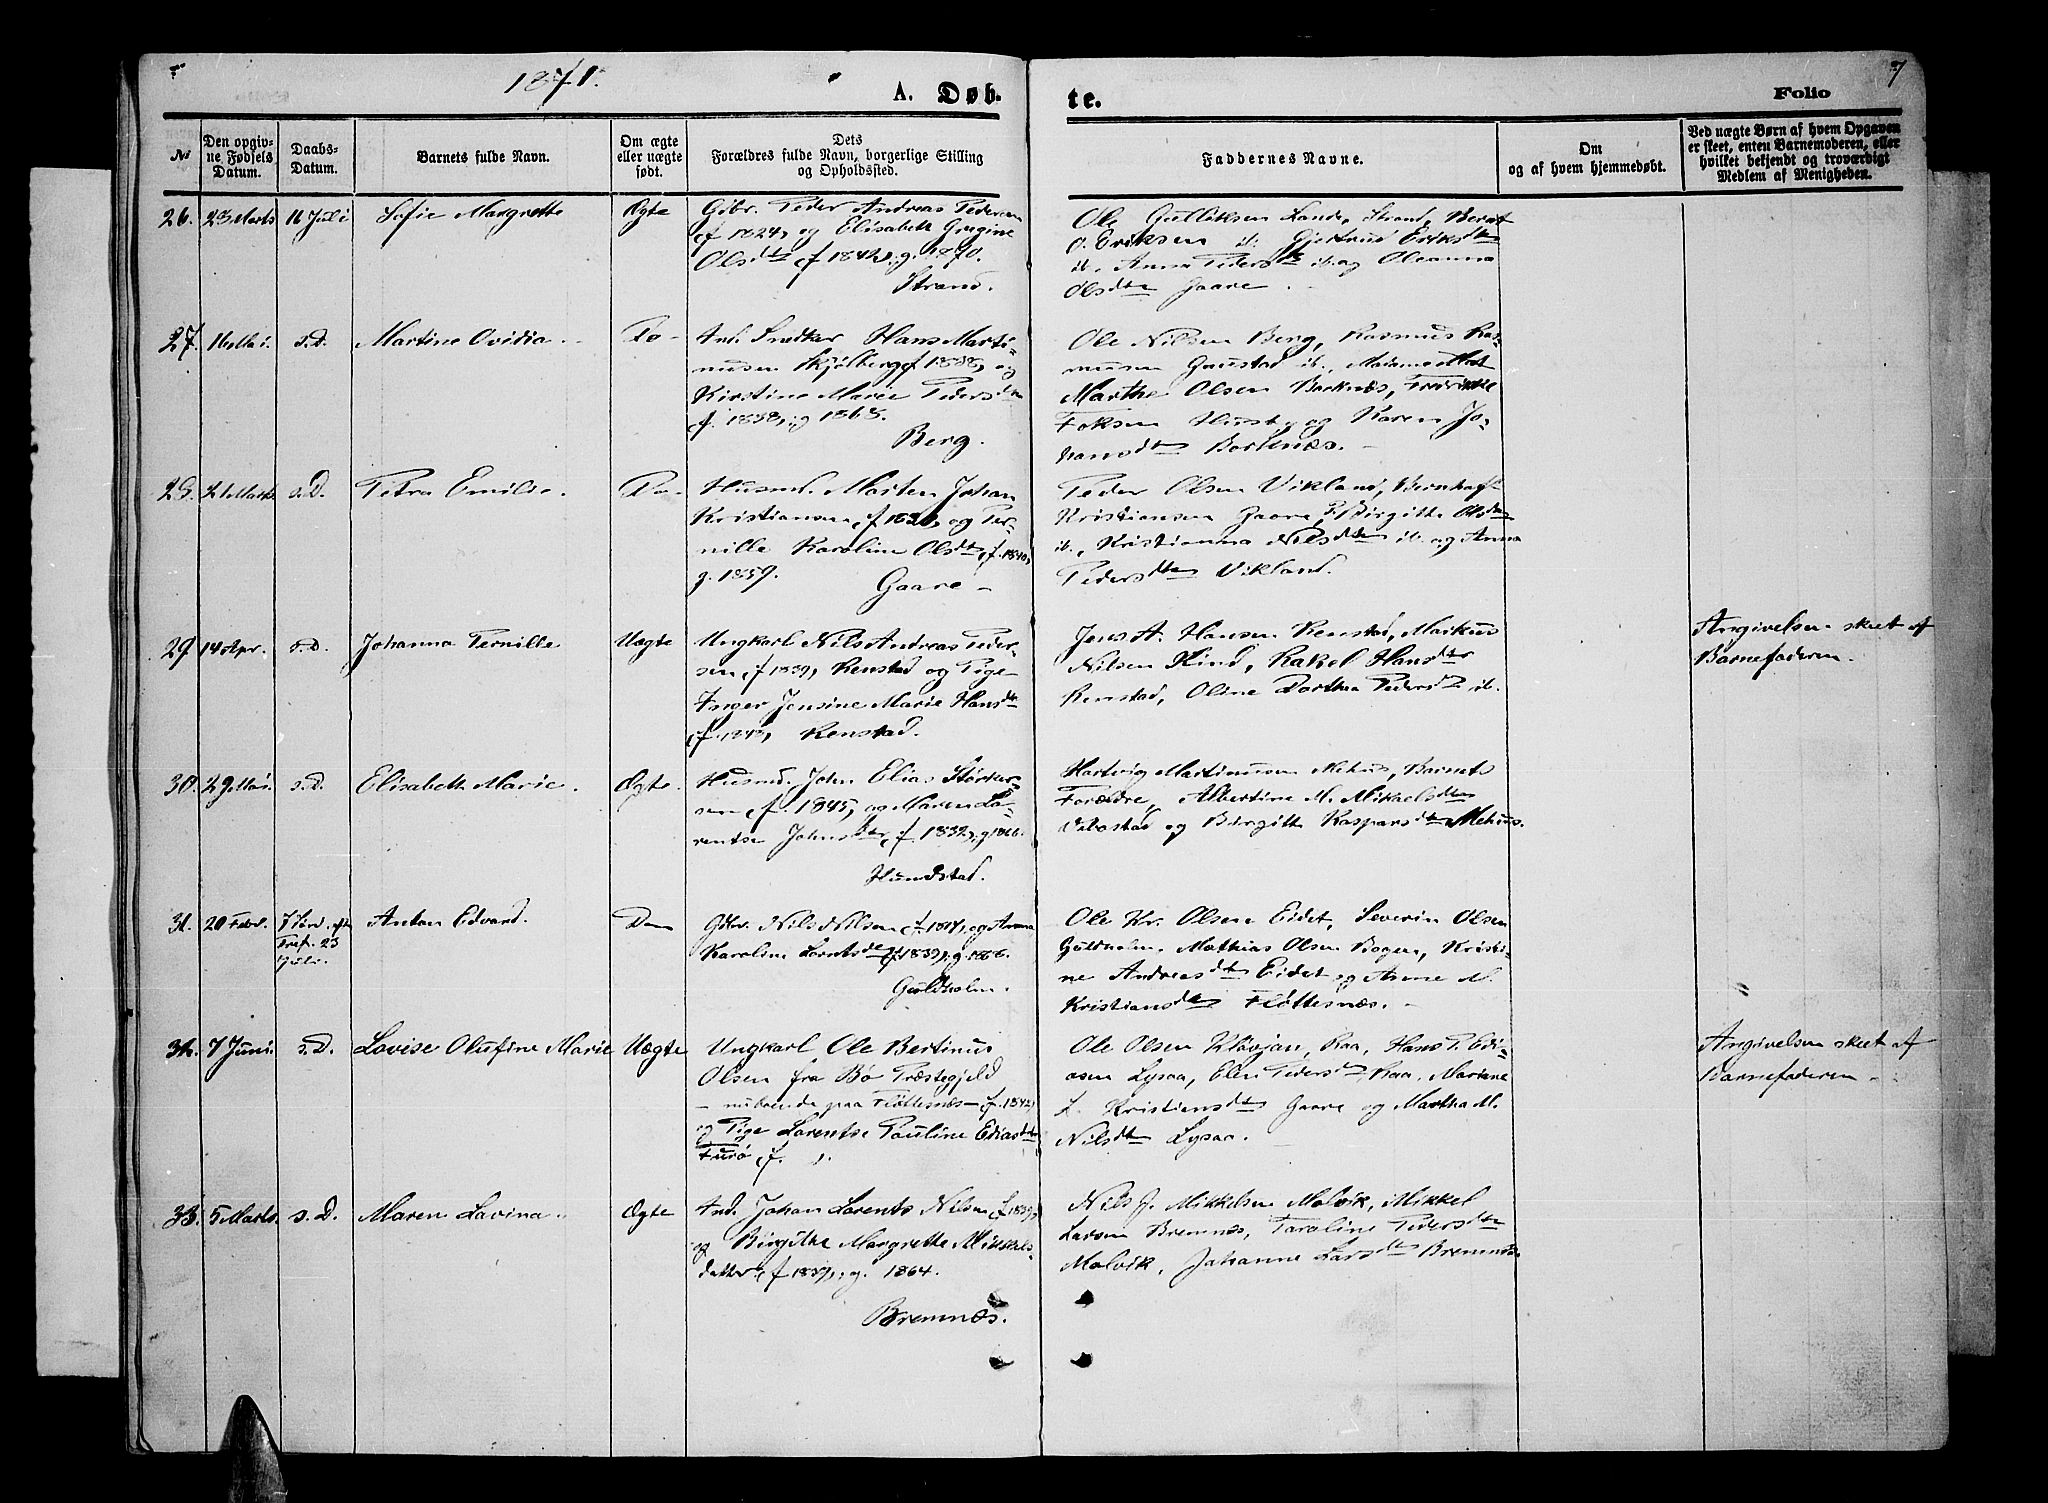 1871.
A. Døb-
te.
Folio
7
No
Den opgiv-
ne Fødsels
Datum.
Daabs-
Datum.
Barnets fulde Navn.
Om ægte
eller uægte
født.
Dets
Forældres fulde Navn, borgerlige Stilling
og Opholdssted.
Faddernes Navne.
Om
og af hvem hjemmedøbt.
Ved uægte Børn af hvem Opgaven
er skeet, enten Barnemoderen, eller
hvilket bekjendt og troværdigt
Medlem af Menigheden.
26. 23 Marts 16 Juli Sofie Margrethe Ægte
Gdbr. Peder Andreas Pedersen
f 1824, og Elisabeth Gurgine
Olsdtr f 1842, g. 1870.
Strand.
Ole Gulliksen Lande, Strand, Bernt
O. Eriksen ib. Gjertrud Eriksdtr
ib. Anna Pedersdtr ib. og Oleanna
Olsdtr Gaare.
27. 16 Mai. s.D. Martine Ovidia.
Ind. Snedker Hans Marti-
nusen Skjølberg f 1838, og
Kirstine Marie Pedersdtr
f. 1838, g 1865.
Berg.
Ole Nilsen Berg, Rasmus Ras-
musen Gaustad ib., Madame
Marthe Olsen Barknæs, Fredrikke
Foksen Husby og Karen Jo-
hansdtr Bortnæs.
28. 21 Marts s.D. Petra Emilie. Do
Husmd. Morten Johan
Kristiansen, f 1830, og Per-
nille Karoline Olsdtr, f. 1840,
g. 1859. Gaare
Peder Olsen Vikland, Bernhaft
Kristiansen Gaare, Birgitte Olsdtr
ib., Kristianna Nilsdtr ib. og Anna
Pedersdtr Vikland.
29 14 Apr. s.D. Johanna Pernille Uægte
Ungkarl Nils Andreas Peder-
sen, f 1839, Renstad og Pige
Inger Jensine Marie Hansdtr
f. 1843, Renstad.
Jens A. Hansen Renstad, Markus
Nilsen Hind, Rakel Hansdtr
Renstad, Oline Dorthea Pedersdtr ib.
Angivelsen skeet af
Barnefaderen.
30. 29 Mai. s.D. Elisabeth Marie. Ægte.
Husmd. John Elias Størker-
sen, f. 1845, og Maren La-
rentse Johnsdtr, f. 1832, g 1866.
Hundstad.
Hartvig Martinusen Mehus, Barnets
Forældre, Albertine M. Mikaelsdtr
Vibostad og Birgitte Kaspersdtr Mehus.
31. 20 Febr. 7 Sønd. eft.
Tref. 23
Juli.
Anton Edvard. Do
Gdbr. Nils Nilsen f. 1817, og Anna
Karoline Lorntsdtr f 1839, g. 1866.
Guldholm.
Ole Kr. Olsen Eidet, Severin Olsen
Guldholm. Mathias Olsen Bogen, Kristi-
ne Andreasdtr Eidet og Anne M.
Kristiansdtr Fløttesnæs.
32. 7 Juni. s.D. Lovise Olufine Marie Uægte
Ungkarl Ole Bertinus
Olsen fra Bø Præstegjeld
- nuboende paa Fløttesnæs - f. 1842,
og Pige Lorentse Pauline Ediasdtr
Furø, f.
Ole Olsen Kløvjan, Raa, Hans P. Edi-
asen Lysaa, Elen Pedersdtr Raa, Mariane
L. Kristiensdtr Gaare og Martha M.
Nilsdtr Lysaa.
Angivelsen skeet af
Barnefaderen
33. 5 Marts. s.D. Maren Lavina. Ægte
Ind. Johan Lorents Nilsen, f. 1839,
og Birgithe Margrethe Mikkels-
datter, f 1839, g. 1864.
Bremnæs.
Nils J. Mikkelsen Molvik, Mikkel
Larsen Bremnæs, Karoline Pedersdtr
Molvik, Johanne Larsdtr Bremnæs.